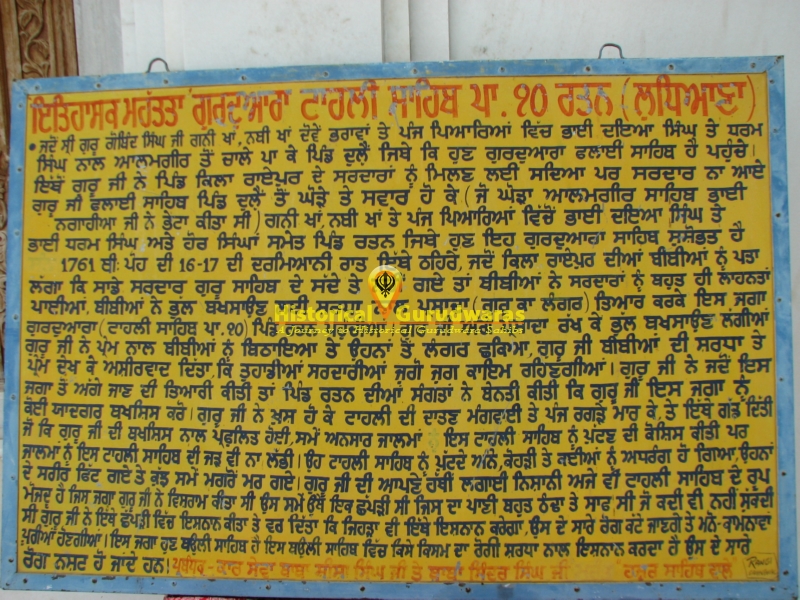 ਇਤਿਹਾਸਕ ਮਹੱਤਤਾ ਗੁਰਦੁਆਰਾ ਟਾਹਲੀ ਸਾਹਿਬ ਪਾ. ੧੦ ਰਤਨ (ਲੁਧਿਆਣਾ)
•ਜਦੋਂ ਸ੍ਰੀ ਗੁਰੂ ਗੋਬਿੰਦ ਸਿੰਘ ਜੀ ਗਨੀ ਖਾਂ, ਨਬੀ ਖਾਂ ਦੋਵੇਂ ਭਰਾਵਾਂ ਤੇ ਪੰਜ ਪਿਆਰਿਆਂ ਵਿੱਚ ਭਾਈ ਦਇਆ ਸਿੰਘ ਤੇ ਧਰਮ
ਸਿੰਘ ਨਾਲ ਆਲਮਗੀਰ ਤੋਂ ਚਾਲੇ ਪਾ ਕੇ ਪਿੰਡ ਦੁਲੇਂ ਜਿਥੇ ਕਿ ਹੁਣ ਗੁਰਦੁਆਰਾ ਫਲਾਈ ਸਾਹਿਬ ਹੈ ਪਹੁੰਚੇ।
ਇਥੋਂ ਗੁਰੂ ਜੀ ਨੇ ਪਿੰਡ ਕਿਲਾ ਰਾਏਪੁਰ ਦੇ ਸਰਦਾਰਾਂ ਨੂੰ ਮਿਲਣ ਲਈ ਸਦਿਆ ਪਰ ਸਰਦਾਰ ਨਾ ਆਏ
ਗੁਰੂ ਜੀ ਫਲਾਈ ਸਾਹਿਬ ਪਿੰਡ ਦੁਲੇਂ ਤੋਂ ਘੋੜੇ ਤੇ ਸਵਾਰ ਹੋ ਕੇ (ਜੋ ਘੋੜਾ ਆਲਮਗੀਰ ਸਾਹਿਬ ਭਾਈ
ਨਗਾਹੀਆ ਜੀ ਨੇ ਭੇਟਾ ਕੀਤਾ ਸੀ) ਗਨੀ ਖਾਂ, ਨਬੀ ਖਾਂ ਤੇ ਪੰਜ ਪਿਆਰਿਆਂ ਵਿੱਚੋਂ ਭਾਈ ਦਇਆ ਸਿੰਘ ਤੇ
ਭਾਈ ਧਰਮ ਸਿੰਘ ਅਤੇ ਹੋਰ ਸਿੰਘਾਂ ਸਮੇਤ ਪਿੰਡ ਰਤਨ ਜਿਥੇ ਹੁਣ ਇਹ ਗੁਰਦੁਆਰਾ ਸਾਹਿਬ ਸੁਸ਼ੋਭਤ ਹੈ
1761 ਬੀ: ਪੋਹ ਦੀ 16-17 ਦੀ ਦਰਮਿਆਨੀ ਰਾਤ ਇਥੇ ਠਹਿਰੇ, ਜਦੋਂ ਕਿਲਾ ਰਾਏਪੁਰ ਦੀਆਂ ਬੀਬੀਆਂ ਨੂੰ ਪਤਾ
ਲੱਗਾ ਕਿ ਸਾਡੇ ਸਰਦਾਰ ਗੁਰੂ ਸਾਹਿਬ ਦੇ ਸੱਦੇ ਤੇ ਗਏ ਤਾਂ ਬੀਬੀਆਂ ਨੇ ਸਰਦਾਰਾਂ ਨੂੰ ਬਹੁਤ ਹੀ ਲਾਹਨਤਾਂ
ਪਾਈਆਂ ਬੀਬੀਆਂ ਨੇ ਭੁਲ ਬਖਸਾਉਣ ਲਈ (ਗੁਰੂ ਕਾ ਲੰਗਰ) ਤਿਆਰ ਕਰਕੇ ਇਸ ਜਗਾ
Historical Gurudwaras
A Journey to Historical Gurudwara Sahibs
ਗੁਰਦੁਆਰਾ (ਟਾਹਲੀ ਸਾਹਿਬ ਪਾ. ੧੦) ਰੱਖ ਕੇ ਭੁਲ ਬਖਸਾਉਣ ਲੱਗੀਆਂ
ਗੁਰੂ ਜੀ ਨੇ ਪ੍ਰੇਮ ਨਾਲ ਬੀਬੀਆਂ ਨੂੰ ਬਿਠਾਇਆ ਤੇ ਉਹਨਾਂ ਤੋਂ ਲੰਗਰ ਛਕਿਆ, ਗੁਰੂ ਜੀ ਬੀਬੀਆਂ ਦੀ ਸਰਧਾ ਤੇ
ਪ੍ਰੇਮ ਦੇਖ ਕੇ ਅਸ਼ੀਰਵਾਦ ਦਿੱਤਾ, ਕਿ ਤੁਹਾਡੀਆਂ ਸਰਦਾਰੀਆਂ ਜੁਗੋਂ ਜੁਗ ਕਾਇਮ ਰਹਿਣਗੀਆਂ। ਗੁਰੂ ਜੀ ਨੇ ਜਦੋਂ ਇਸ
ਜਗਾ ਤੋਂ ਅੱਗੇ ਜਾਣ ਦੀ ਤਿਆਰੀ ਕੀਤੀ ਤਾਂ ਪਿੰਡ ਰਤਨ ਦੀਆਂ ਸੰਗਤਾਂ ਨੇ ਬੇਨਤੀ ਕੀਤੀ ਕਿ ਗੁਰੂ ਜੀ ਇਸ ਜਗਾ ਨੂੰ
ਕੋਈ ਯਾਦਗਰ ਬਖਸਿਸ ਕਰੋ। ਗੁਰੂ ਜੀ ਨੇ ਖੁਸ਼ ਹੋ ਕੇ ਟਾਹਲੀ ਦੀ ਦਾਤਣ ਮੰਗਵਾਈ ਤੇ ਪੰਜ ਰਗੜੇ ਮਾਰ ਕੇ, ਤੇ ਇਥੇ ਗੱਡ ਦਿੱਤੀ
ਜੋ ਕਿ ਗੁਰੂ ਜੀ ਦੀ ਬਖਸਿਸ ਨਾਲ ਪ੍ਰਫੁਲਿਤ ਹੋਈ, ਸਮੇਂ ਅਨਸਾਰ ਜਾਲਮਾਂ ਇਸ ਟਾਹਲੀ ਸਾਹਿਬ ਨੂੰ ਪੁੱਟਣ ਦੀ ਕੋਸਿਸ ਕੀਤੀ ਪਰ
ਜਾਲਮਾਂ ਨੂੰ ਇਸ ਟਾਹਲੀ ਸਾਹਿਬ ਦੀ ਜੜ ਵੀ ਨਾ ਲੱਭੀ। ਉਹ ਟਾਹਲੀ ਸਾਹਿਬ ਨੂੰ ਪੁੱਟਦੇ ਅੰਨੇ, ਕੋਹੜੀ ਤੇ ਕਈਆਂ ਨੂੰ ਅਧਰੰਗ ਹੋ ਗਿਆ, ਉਹਨਾਂ
ਦੇ ਸਰੀਰ ਫਿੱਟ ਗਏ ਤੇ ਕੁੱਝ ਸਮੇਂ ਮਗਰੋਂ ਮਰ ਗਏ। ਗੁਰੂ ਜੀ ਦੀ ਆਪਣੇ ਹੱਥੀਂ ਲਗਾਈ ਨਿਸ਼ਾਨੀ ਅਜੇ ਵੀ ਟਾਹਲੀ ਸਾਹਿਬ ਦੇ ਰੂਪ
ਮੌਜੂਦ ਹੈ ਜਿਸ ਜਗਾ ਗੁਰੂ ਜੀ ਨੇ ਵਿਸਰਾਮ ਕੀਤਾ ਸੀ ਉਸ ਸਮੇਂ ਉਥੇ ਇਕ ਛੱਪੜੀ ਸੀ ਜਿਸ ਦਾ ਪਾਣੀ ਬਹੁਤ ਠੰਢਾ ਤੇ ਸਾਫ ਸੀ ਜੋ ਕਦੀ ਵੀ ਨਹੀਂ ਸੁੱਕਦੀ
ਸੀ ਗੁਰੂ ਜੀ ਨੇ ਇਥੇ ਛੱਪੜੀ ਵਿੱਚ ਇਸਨਾਨ ਕੀਤਾ ਤੇ ਵਰ ਦਿੱਤਾ ਕਿ ਜਿਹੜਾ ਵੀ ਇੱਥੇ ਇਸਨਾਨ ਕਰੇਗਾ, ਉਸ ਦੇ ਸਾਰੇ ਰੋਗ ਕੱਟੇ ਜਾਣਗੇ ਤੇ ਮਨੋ-ਕਾਮਨਾਵਾਂ
ਪੂਰੀਆਂ ਹੋਣਗੀਆਂ। ਇਸ ਜਗਾ ਹੁਣ ਬਉਲੀ ਸਾਹਿਬ ਹੈ ਇਸ ਬਉਲੀ ਸਾਹਿਬ ਵਿੱਚ ਕਿਸੇ ਕਿਸਮ ਦਾ ਰੋਗੀ ਸਰਧਾ ਨਾਲ ਇਸਨਾਨ ਕਰਦਾ ਹੈ ਉਸ ਦੇ ਸਾਰੇ
ਰੋਗ ਨਸਟ ਹੋ ਜਾਂਦੇ ਹਨ। ਪ੍ਰਬੰਧਕ-ਕਾਰ ਸੇਵਾ ਬਾਬਾ ਸਿੰਘ ਜੀ ਤੇ ਬਾਬਾ ਜਿੰਦਰ ਸਿੰਘ ਜੀ ਹਜ਼ੂਰ ਸਾਹਿਬ ਵਾਲੇ